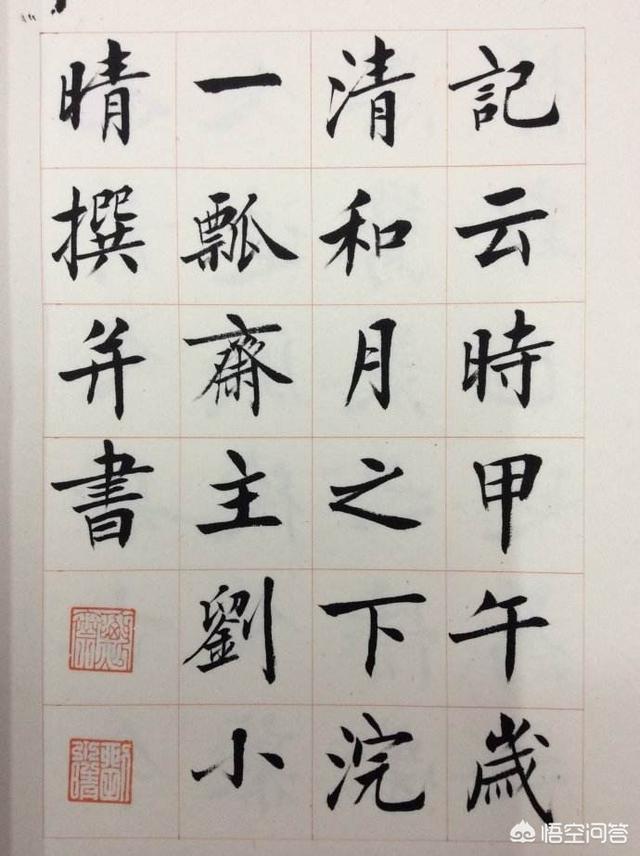 記云時甲午歲
清和月之下浣
一瓢齋主劉小
晴撰并書
悟空问答